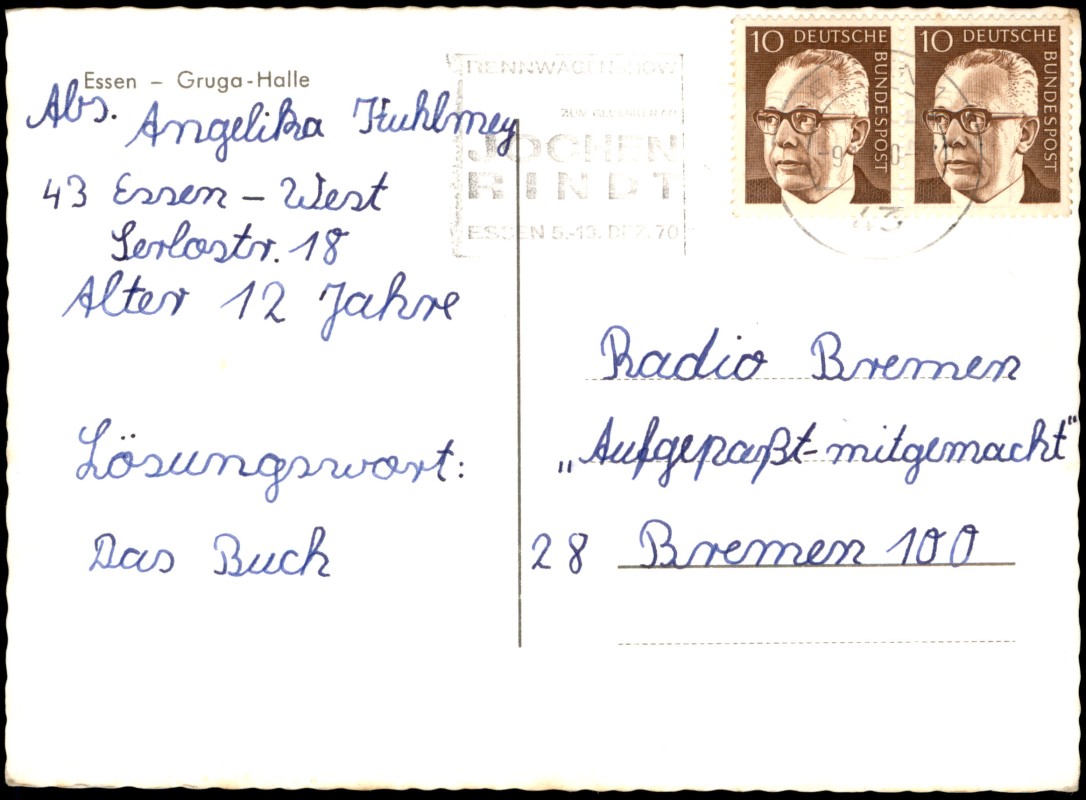 Essen – Gruga-Halle
Abs. Angelika Kuhlmey
43 Essen – West
Serlostr. 18
Alter 12 Jahre
Lösungswort:
Das Buch
RENNWAGENSHOW
JOCHEN
RINDT
ESSEN 5.-13. DEZ. 70
10 DEUTSCHE
BUNDESPOST
10 DEUTSCHE
BUNDESPOST
43
Radio Bremen
„Aufgepaßt-mitgemacht"
28 Bremen 100